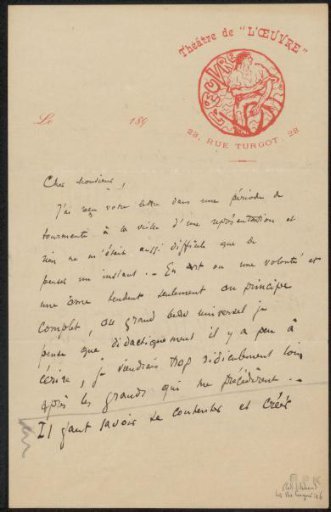 Théâtre de "L'ŒUVRE"
23, RUE TURGOT, 23
Le 189
Cher Monsieur,
J'ai reçu votre lettre dans une période de
tourmente à la veille d'une représentation et
rien ne m'était aussi difficile que de
penser un instant. — En art ou une volonté et
une âme tendent seulement au principe
complet, au grand beau universel je
pense que didactiquement il y a peu à
écrire, je viendrais trop ridiculement loin
après les grands qui me précédèrent. —
Il faut savoir se contenter et créer